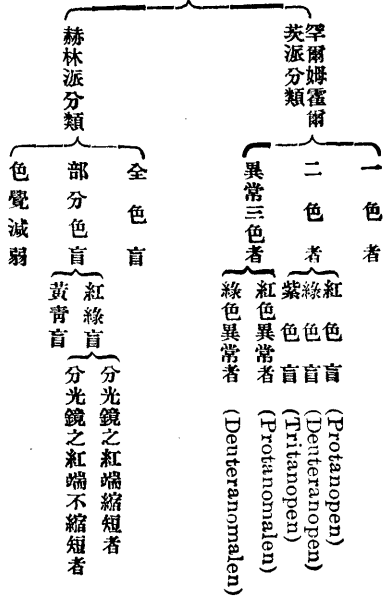 罕爾姆霍爾
茨派分類
一色者
二色者
紅色盲 (Protanopen)
綠色盲 (Deuteranopen)
紫色盲 (Tritanopen)
異常三色者
紅色異常者 (Protanomalen)
綠色異常者 (Deuteranomalen)
赫林派分類
全色盲
部分色盲
紅綠盲
分光鏡之紅端縮短者
分光鏡之紅端不縮短者
黃青盲
色覺減弱